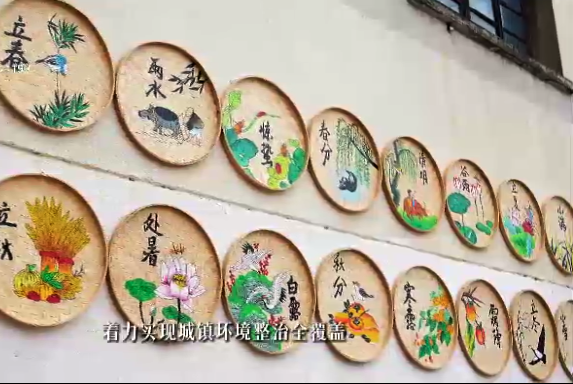 立春
雨水
惊蛰
春分
清明
谷雨
立夏
立秋
处暑
白露
秋分
寒露
霜降
立冬
着力实现城镇环境整治全覆盖